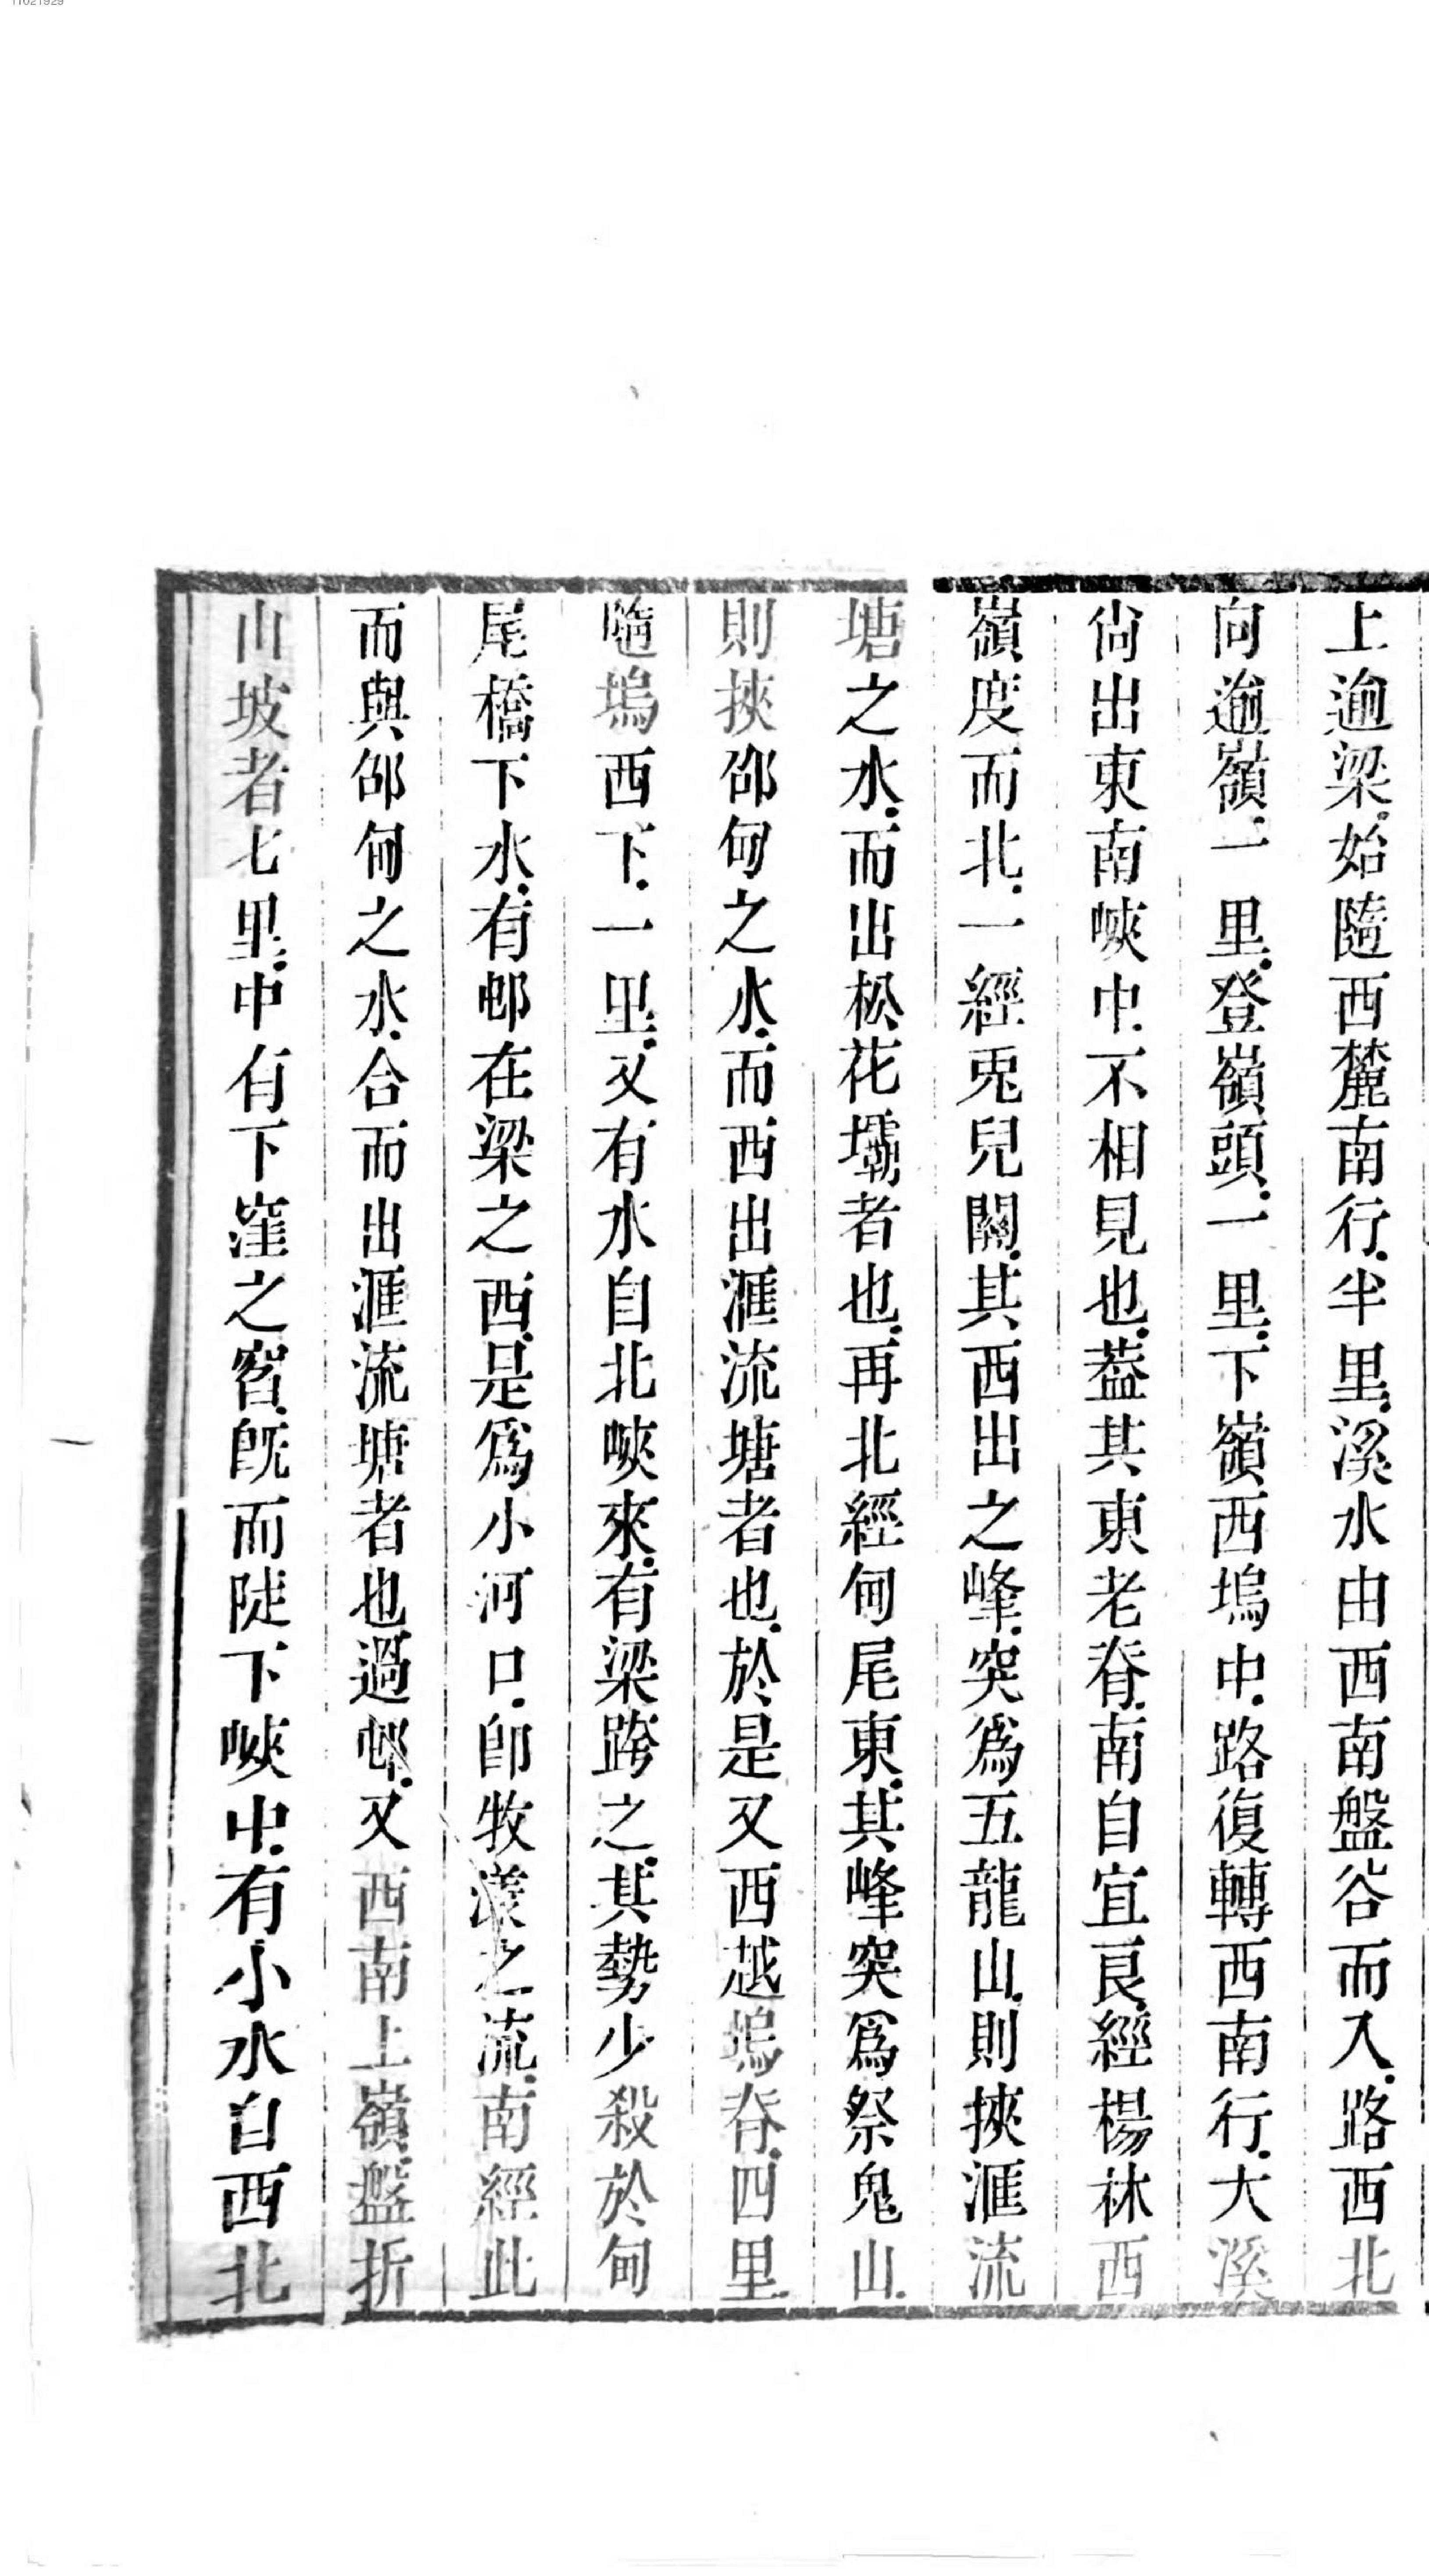 11021929
上逾梁始隨西麓南行半里溪水由西南盤谷而入路西北
向逾嶺一里登嶺頭一里下嶺西塢中路復轉西南行大溪
尙出東南峽中不相見也葢其東老脊南自宜良經楊林西
嶺度而北一經兎兒關其西出之峰突爲五龍山則挾滙流
塘之水而出松花壩者也再北經甸尾東其峰突爲祭鬼山
則挾邵甸之水而西出滙流塘者也於是又西越塢脊四里
隨塢西下一里又有水自北峽來有梁跨之其勢少殺於甸
尾橋下水有邨在梁之西是爲小河口卽牧漾之流南經此
而與邵甸之水合而出滙流塘者也過邨又西南上嶺盤折
山坡者七里中有下窪之窞旣而陡下峽中有小水自西北